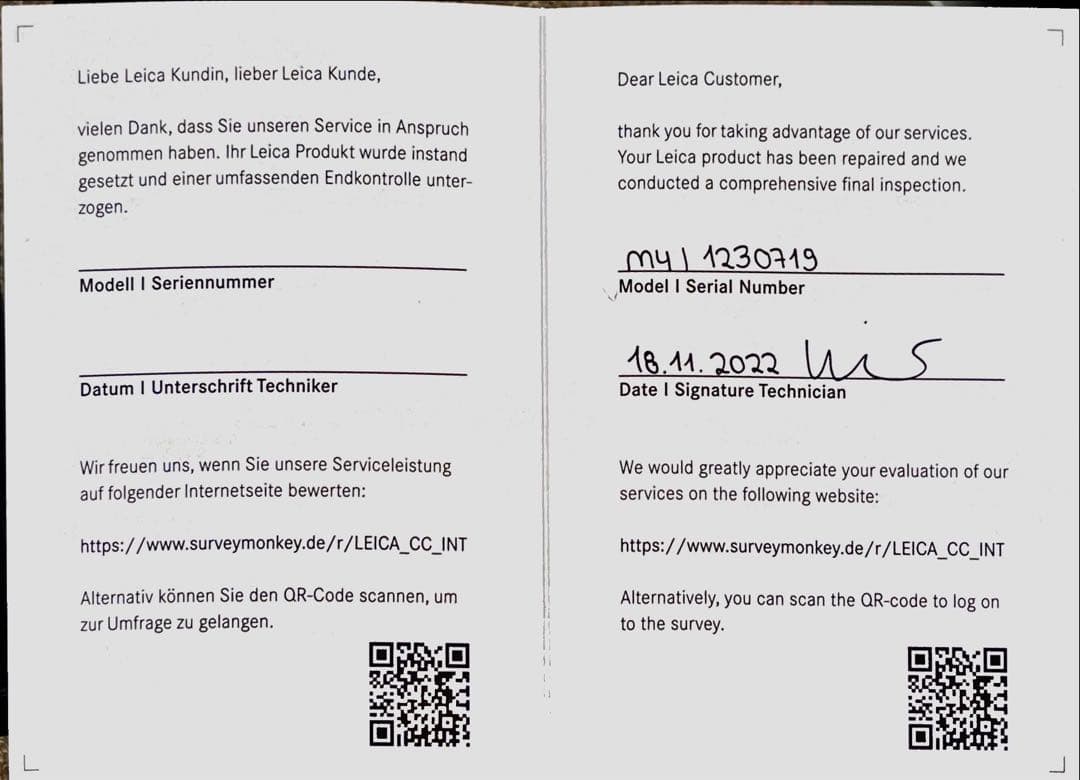 Liebe Leica Kundin, lieber Leica Kunde,
vielen Dank, dass Sie unseren Service in Anspruch
genommen haben. Ihr Leica Produkt wurde instand
gesetzt und einer umfassenden Endkontrolle unter-
zogen.
Modell I Seriennummer
Datum I Unterschrift Techniker
Wir freuen uns, wenn Sie unsere Serviceleistung
auf folgender Internetseite bewerten:
https://www.surveymonkey.de/r/LEICA_CC_INT
Alternativ können Sie den QR-Code scannen, um
zur Umfrage zu gelangen.
Dear Leica Customer,
thank you for taking advantage of our services.
Your Leica product has been repaired and we
conducted a comprehensive final inspection.
M4 | 1230719
Model I Serial Number
18.11.2022
Date I Signature Technician
We would greatly appreciate your evaluation of our
services on the following website:
https://www.surveymonkey.de/r/LEICA_CC_INT
Alternatively, you can scan the QR-code to log on
to the survey.